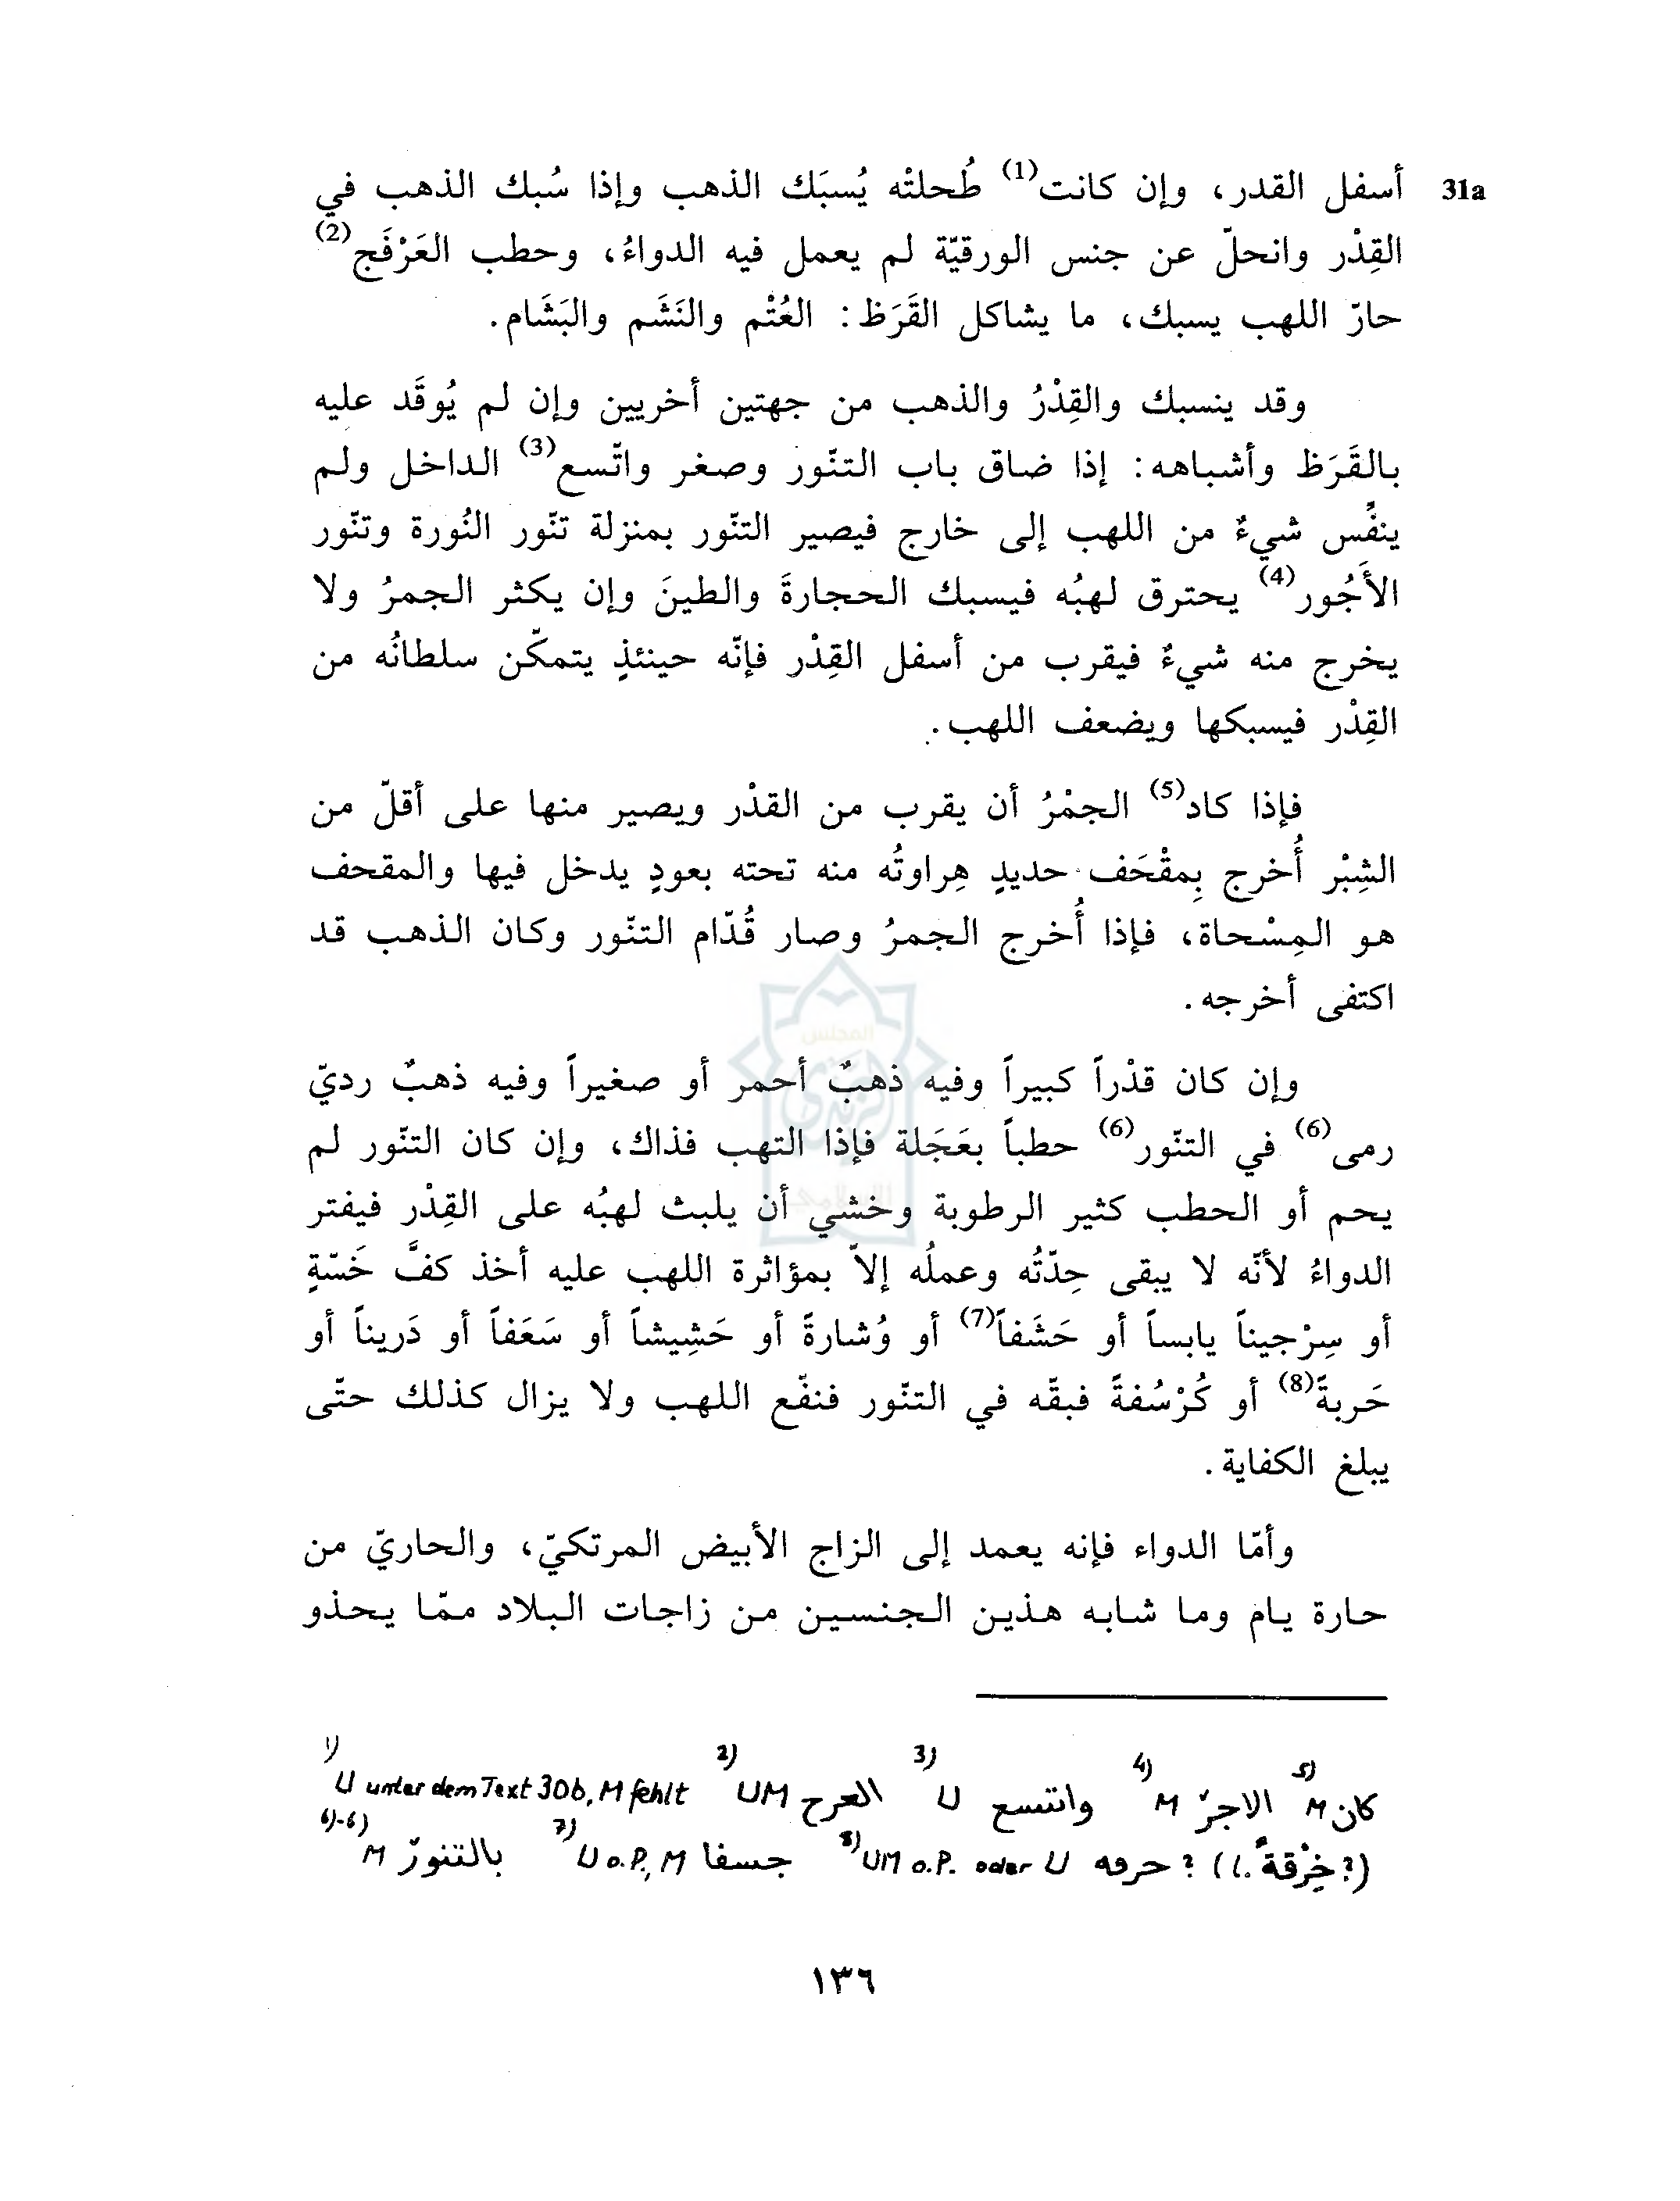 أسفل القدر، وإن كانت(1) طُحلتْه يُسبَك الذهب وإذا سُبك الذهب في 31a
القِدْر وانحلّ عن جنس الورقيّة لم يعمل فيه الدواءُ، وحطب العَرْفَج(2)
حارّ اللهب يسبك، ما يشاكل القَرَظ: العُتْم والنَشَم والبَشَام.
وقد ينسبك والقِدْرُ والذهب من جهتين أخريين وإن لم يُوقَد عليه
بالقَرَظ وأشباهه: إذا ضاق باب التنّور وصغر واتّسع(3) الداخل ولم
ينفُّس شيءٌ من اللهب إلى خارج فيصير التنّور بمنزلة تنّور النُورة وتنّور
الأَجُور(4) يحترق لهبُه فيسبك الحجارةَ والطينَ وإن يكثر الجمرُ ولا
يخرج منه شيءٌ فيقرب من أسفل القِدْر فإنّه حينئذٍ يتمكّن سلطانُه من
القِدْر فيسبكها ويضعف اللهب.
فإذا كاد(5) الجمْرُ أن يقرب من القدْر ويصير منها على أقلّ من
الشِبْر أُخرج بِمقْحَف حديدٍ هِراوتُه منه تحته بعودٍ يدخل فيها والمقحف
هو المِسْحاة، فإذا أُخرج الجمرُ وصار قُدّام التنّور وكان الذهب قد
اكتفى أخرجه.
وإن كان قدْراً كبيراً وفيه ذهبٌ أحمر أو صغيراً وفيه ذهبٌ رديّ
رمى(6) في التنّور(6) حطباً بعَجَلة فإذا التهب فذاك، وإن كان التنّور لم
يحم أو الحطب كثير الرطوبة وخشي أن يلبث لهبُه على القِدْر فيفتر
الدواءُ لأنّه لا يبقى حِدّتُه وعملُه إلاّ بمؤاثرة اللهب عليه أخذ كفَّ خَسّةٍ
أو سِرْجيناً يابساً أو حَشَفاً(7) أو وُشارةً أو حَشِيشاً أو سَعَفاً أو دَريناً أو
حَربةً(8) أو كُرْسُفةً فبقّه في التنّور فنفّع اللهب ولا يزال كذلك حتّى
يبلغ الكفاية.
وأمّا الدواء فإنه يعمد إلى الزاج الأبيض المرتكيّ، والحاريّ من
حارة يام وما شابه هذين الجنسين من زاجات البلاد ممّا يحذو
1) U unter dem Text 30b, M fehlt 2) UM العرح 3) U وانتسع 4) M الاجرّ 5) M كان
6)-6) M بالتنورّ 7) U o.P., M جسفا 8) UM o.P. oder U حرفه ? (خِرْقةً ?)
المجلس
الإسلامي
١٣٦